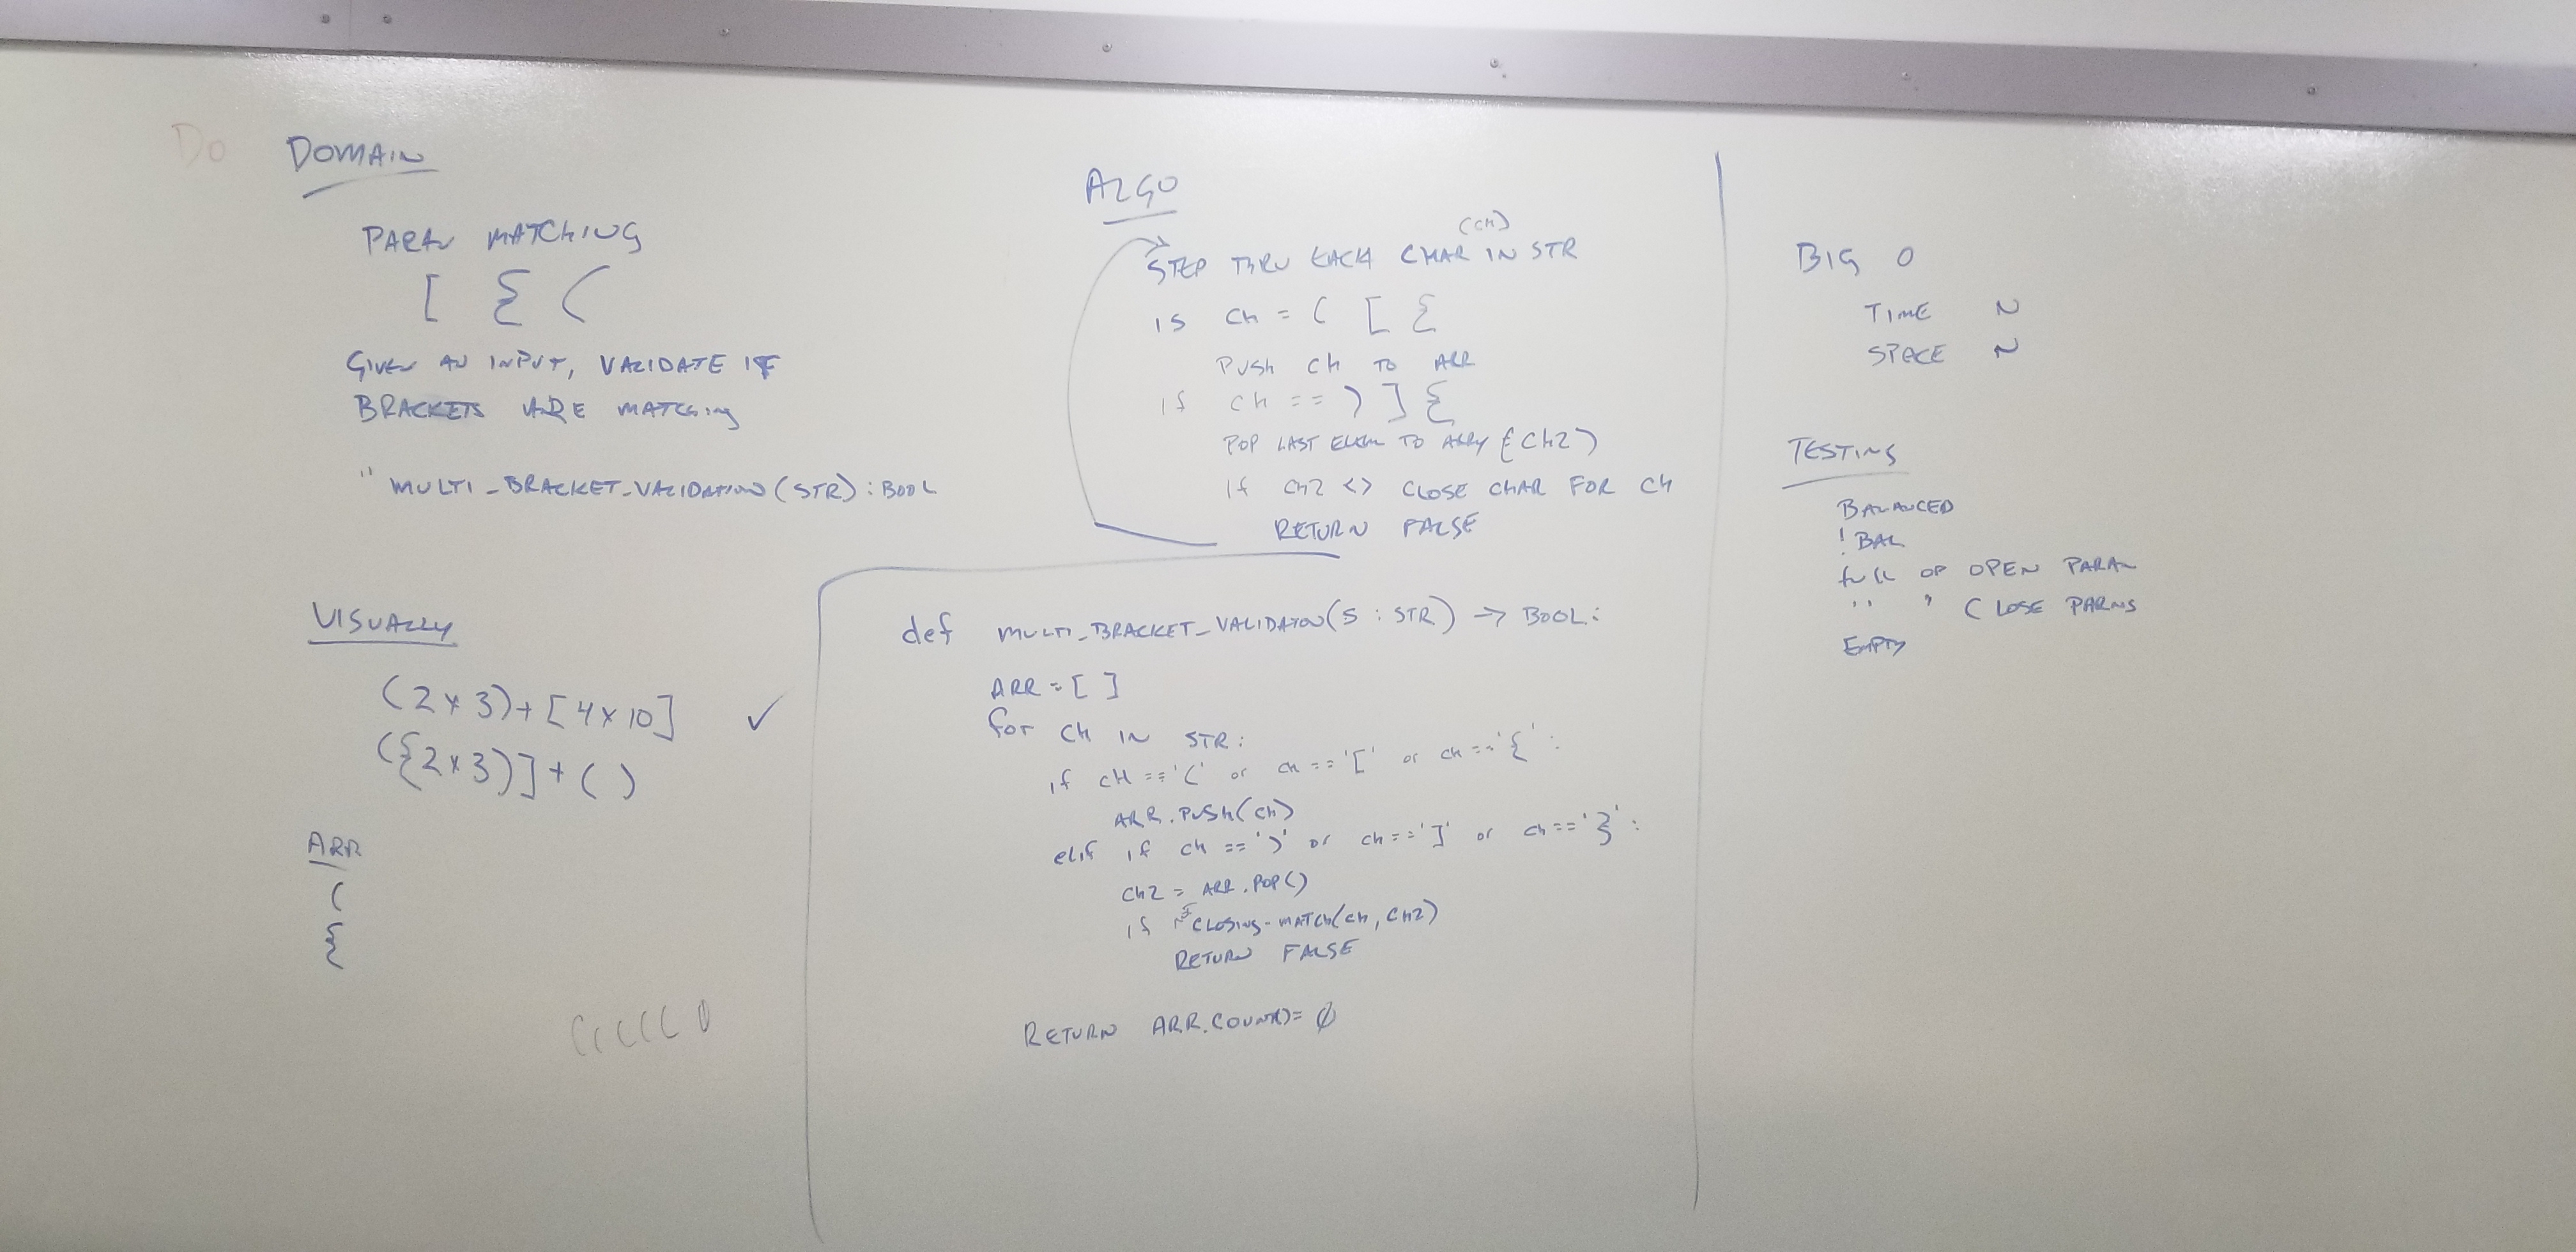 Do
DOMAIN
PARAN MATCHING
[ { (
GIVEN AN INPUT, VALIDATE IF
BRACKETS ARE MATCHING
" MULTI_BRACKET_VALIDATION(STR):BOOL
VISUALLY
(2x3)+[4x10] ✓
({2x3)]+()
ARR
(
{
ALGO
(CH)
STEP THRU EACH CHAR IN STR
IS CH = ( [ {
PUSH CH TO ARR
If CH == ) ] {
POP LAST ELEM TO ARRY (CH2)
If CH2 <> CLOSE CHAR FOR CH
RETURN FALSE
def MULTI_BRACKET_VALIDATON(S : STR) -> BOOL:
ARR = [ ]
for CH IN STR:
if CH == '(' or CH == '[' or CH == '{' :
ARR.PUSH(CH)
elif if CH == ')' or CH == ']' or CH == '}' :
CH2 = ARR.POP()
if CLOSING-MATCH(CH, CH2)
RETURN FALSE
RETURN ARR.COUNT()= 0
BIG O
TIME N
SPACE N
TESTING
BALANCED
! BAL
full OF OPEN PARAN
" " CLOSE PARNS
EMPTY